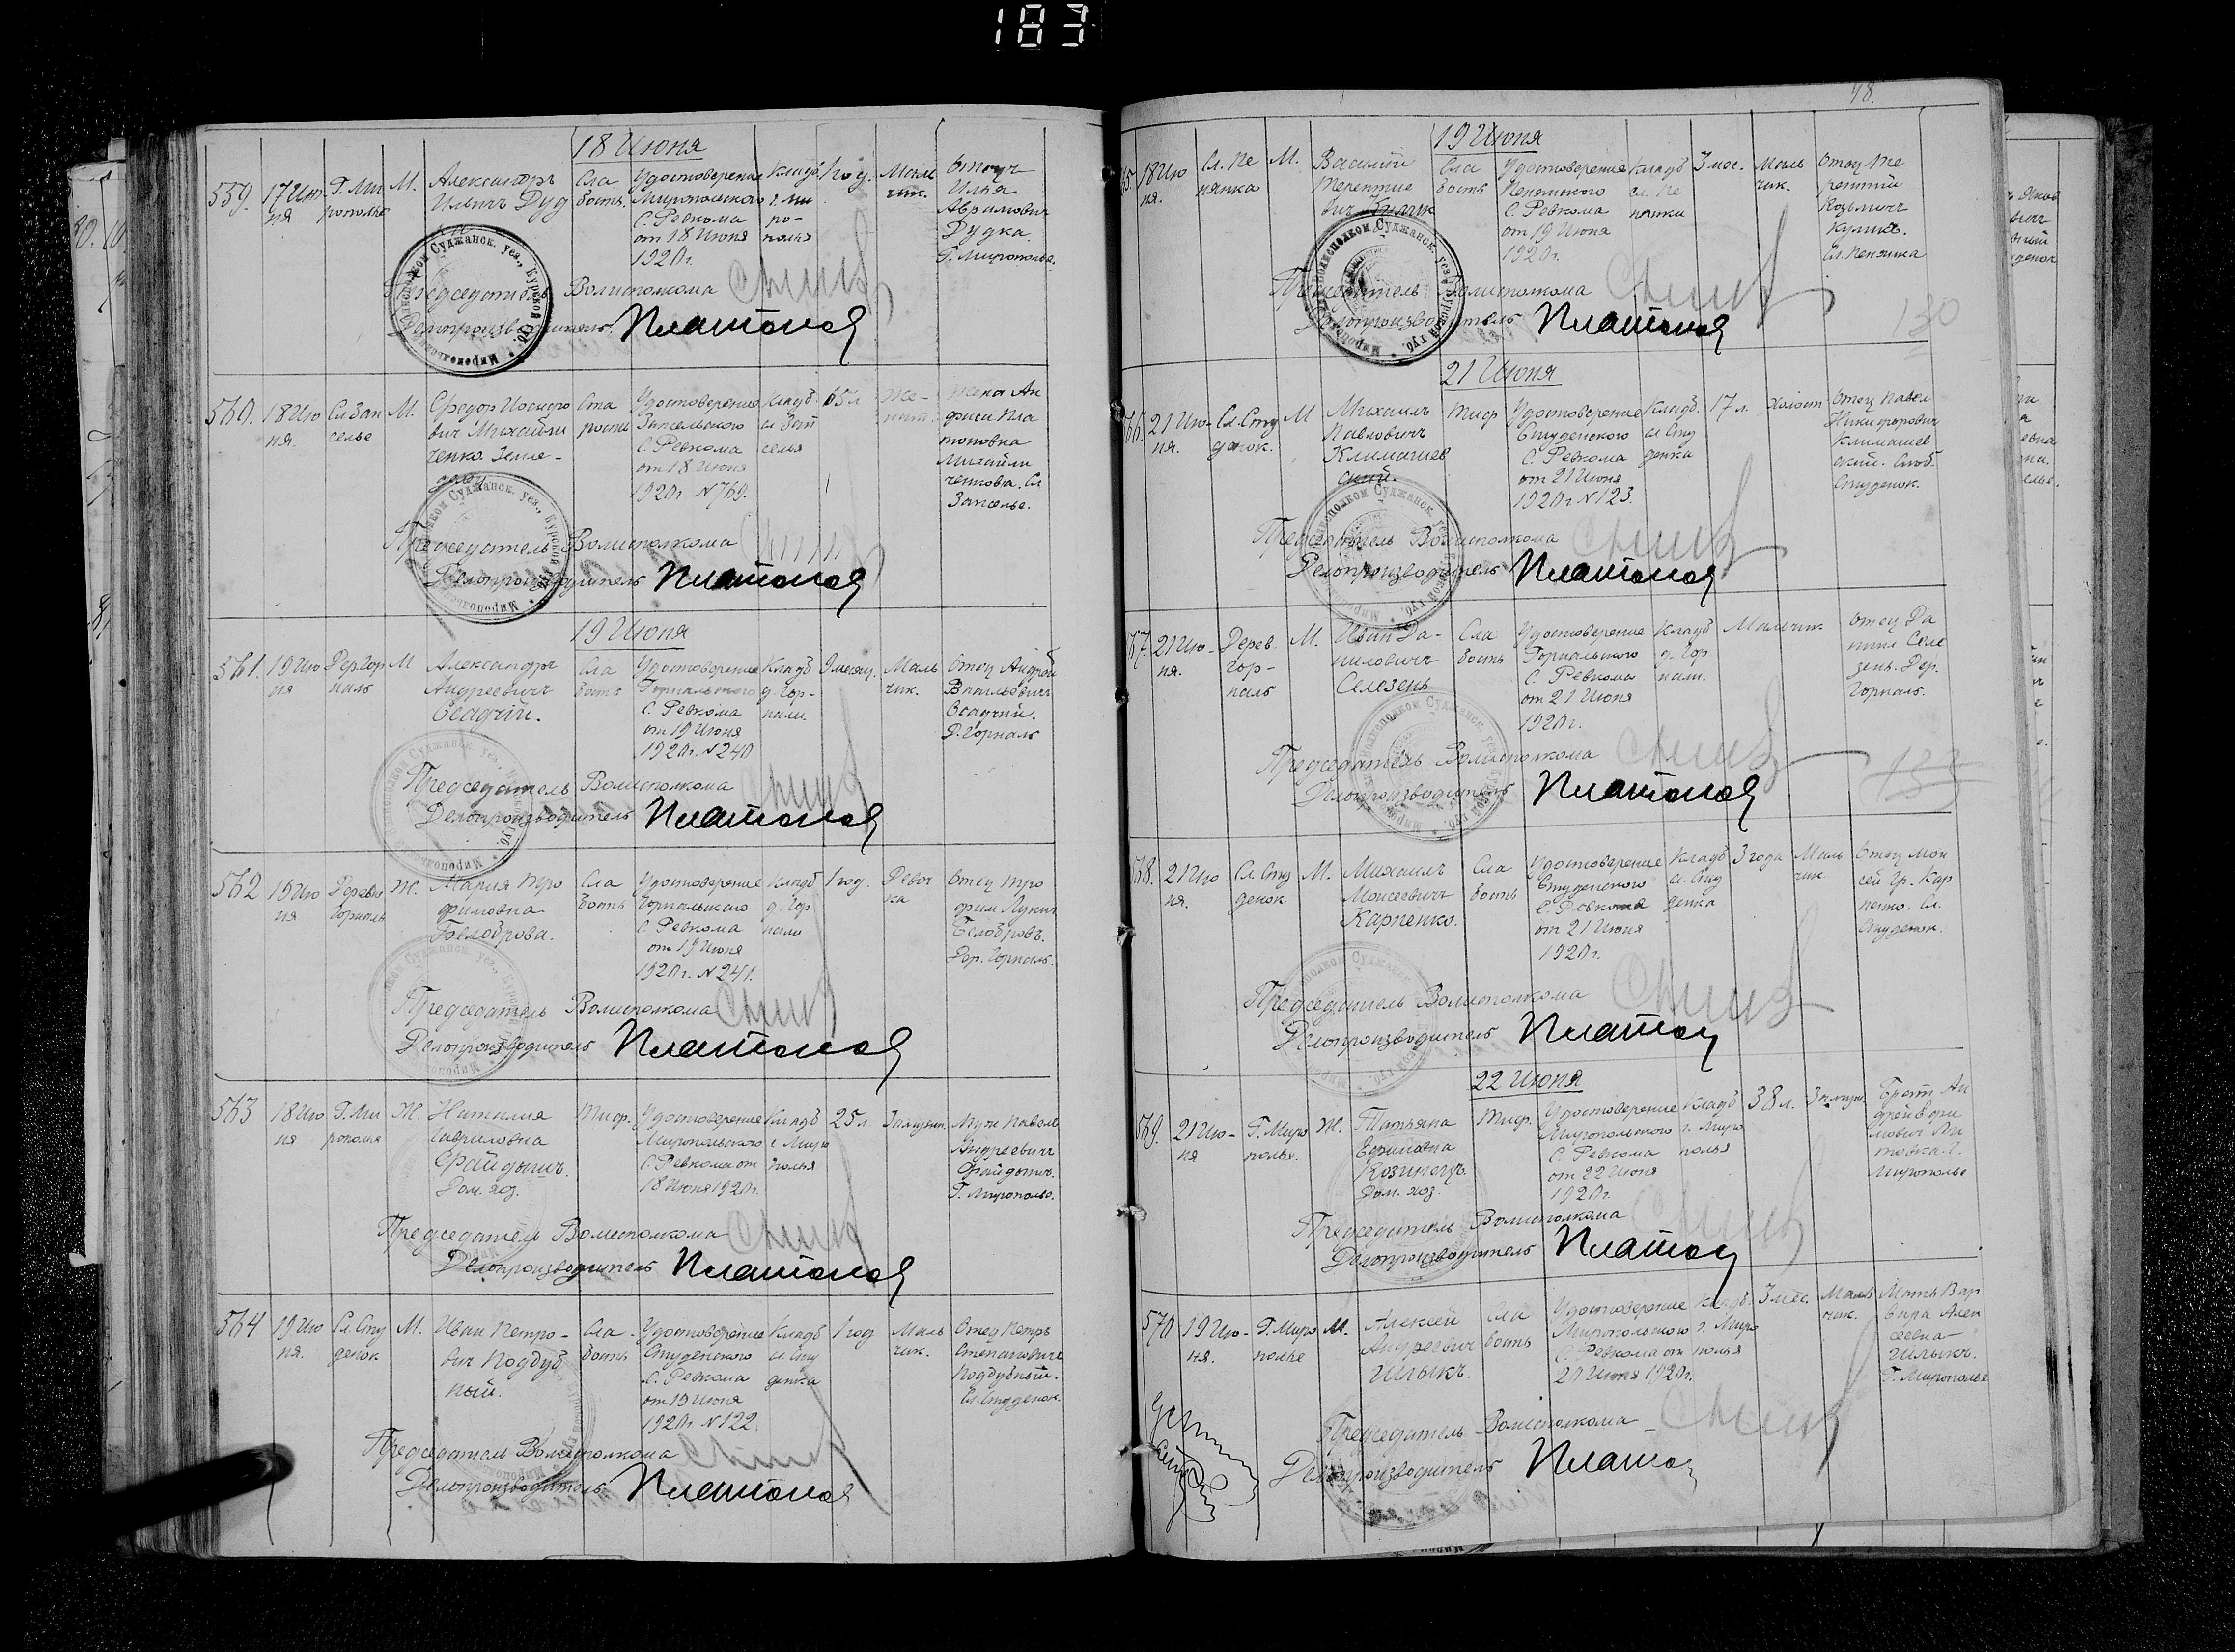 183
18 Июня
559.
17 Ию
ня
Г. Ми
рополье
М.
Александръ
Ильичъ Дуд
ка
Сла
бость.
Удостоверение
Миропольского
С. Ревкома
от 18 Июня
1920 г.
Кладб
г. Ми
ро-
полья
1 год.
Маль
чик.
Отец
Илья
Аврамович
Дудка
Г. Мирополье.
Председатель Волисполкома
Делопроизводитель Платонов
560.
18 Ию
ня.
Сл. Зап
селье
М.
Федор Иосифо
вич Михайли
ченко. Земле-
делец
Ста
рости
Удостоверение
Запсельского
С. Ревкома
от 18 Июня
1920 г. № 769.
Кладб.
сл. Зап
селья
65 л.
Же-
нат.
Жена Ан
фиса Пла
тоновна
Михайли
ченкова. Сл.
Запселье.
Председатель Волисполкома
Делопроизводитель Платонов
19 Июня
561.
19 Ию
ня
Дер. Гор
наль
М
Александръ
Андреевичъ
Осадчiй.
Сла
бость
Удостоверение
Горнальского
С. Ревкома
от 19 Июня
1920 г. № 240
Кладб
д. Гор-
нали
9 месяц.
Маль
чик.
Отец Андрей
Васильевич
Осадчий.
Д. Горналь
Председатель Волисполкома
Делопроизводитель Платонов
562
19 Ию
ня
Деревн
Горналь
Ж.
Мария Тро
фимовна
Белоброва.
Сла
бость
Удостоверение
Горнальского
С. Ревкома
от 19 Июня
1920 г. № 241.
Кладб
д. Гор
нали
1 год.
Девоч
ка
Отец Тро
фим Лукич
Белобровъ.
Дер. Горналь.
Председатель Волисполкома
Делопроизводитель Платонов
563
18 Ию
ня
Г. Ми
рополья
Ж.
Наталия
Гавриловна
Файдычъ.
Дом. хоз.
Тиф.
Удостоверение
Миропольского
С. Ревкома от
18 Июня 1920 г.
Кладб
г. Миро
полья
25 л.
Замужн.
Муж Павел
Андреевич
Файдычъ.
Г. Мирополье.
Председатель Волисполкома
Делопроизводитель Платонов
564
19 Ию
ня.
Сл. Сту
денок
М.
Иван Петро-
вич Поддуб
ный.
Сла-
бость
Удостоверение
Студенского
С. Ревкома
от 19 Июня
1920 г. № 122.
Кладб
сл. Сту
денка
1 год
Маль
чик.
Отец Петръ
Степанович
Поддубный.
Сл. Студенок.
Председатель Волисполкома
Делопроизводитель Платонов
48.
19 Июня
18 Ию
ня.
Сл. Пе
нянка
М.
Василий
Терентие
вич Кулик
Сла
бость
Удостоверение
Пенянского
С. Ревкома
от 19 Июня
1920 г.
Кладб
сл. Пе
нянки
3 мес.
Маль
чик.
Отец Те
рентий
Козьмичъ
Куликъ.
Сл. Пенянка
Председатель Волисполкома
Делопроизводитель Платонов
130
21 Июня
66.
21 Ию-
ня.
Сл. Сту
денок.
М
Михаилъ
Павловичъ
Климашев
ский.
Тиф
Удостоверение
Студенского
С. Ревкома
от 21 Июня
1920 г. № 123.
Кладб.
сл. Сту
денка
17 л.
Холост
Отец Павел
Никифорович
Климашев
ский. Слоб.
Студенок.
Председатель Волисполкома
Делопроизводитель Платонов
67.
21 Ию-
ня.
Дерев.
Гор-
наль
М.
Иван Да-
нилович
Селезень
Сла
бость
Удостоверение
Горнальского
С. Ревкома
от 21 Июня
1920 г.
Кладб
д. Гор
нали.
Мальчик
Отец Да
нил Селе
зень. Дер.
Горналь.
Председатель Волисполкома
Делопроизводитель Платонов
68.
21 Ию
ня.
Сл. Сту
денок
М.
Михаилъ
Моисеевичъ
Карпенко.
Сла
бость
Удостоверение
Студенского
С. Ревкома
от 21 Июня
1920 г.
Кладб
сл. Сту
денка
3 года
Маль
чик.
Отец Мои
сей Гр. Кар
пенко. Сл.
Студенок.
Председатель Волисполкома
Делопроизводитель Платонов
22 Июня
69.
21 Ию-
ня
Г. Миро
полье.
Ж.
Татьяна
Ефимовна
Козинецъ.
Дом. хоз.
Тиф.
Удостоверение
Миропольского
С. Ревкома
от 22 Июня
1920 г.
Кладб
г. Миро
полья
38 л.
Замужн.
Брат Ан
дрей
Миrополье
Председатель Волисполкома
Делопроизводитель Платонов
570
19 Ию-
ня.
Г. Миро
полье
М.
Алексей
Андреевич
Шлыкъ.
Сла
бость
Удостоверение
Миропольского
С. Ревкома от
20 Июня 1920 г.
Кладб.
г. Миро
полья
3 мес.
Маль
чик.
Мать Вар
вара Алек
сеевна
Шлыкъ.
Г. Миrополье
Председатель Волисполкома
Делопроизводитель Платонов